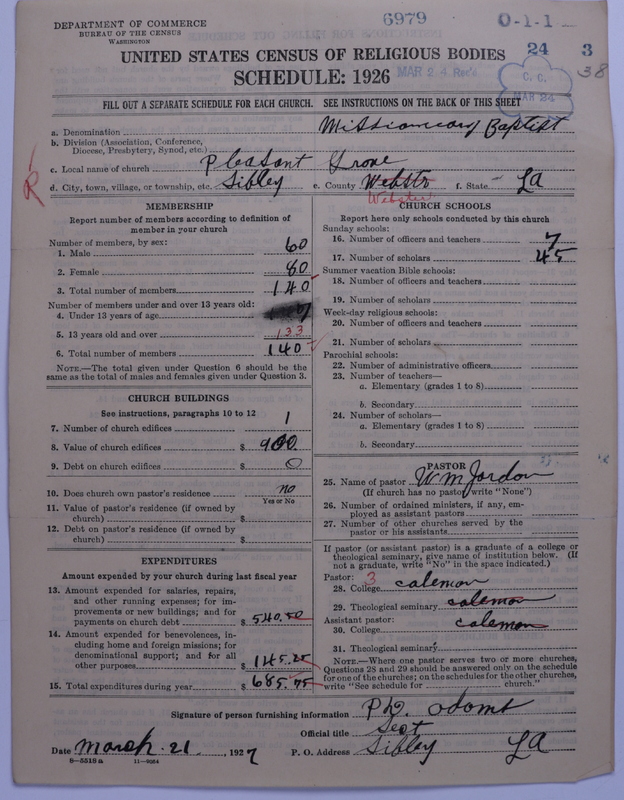 DEPARTMENT OF COMMERCE
BUREAU OF THE CENSUS
WASHINGTON
6979
0-1-1-
24 3
38
UNITED STATES CENSUS OF RELIGIOUS BODIES
SCHEDULE: 1926
MAR 24 Rec'd
C. C.
MAR 24
FILL OUT A SEPARATE SCHEDULE FOR EACH CHURCH. SEE INSTRUCTIONS ON THE BACK OF THIS SHEET
a. Denomination Missionary Baptist
b. Division (Association, Conference,
Diocese, Presbytery, Synod, etc.)
c. Local name of church Pleasant Grove
d. City, town, village, or township, etc. Sibley e. County Webstr f. State La
R
Webster
MEMBERSHIP
Report number of members according to definition of
member in your church
Number of members, by sex:
1. Male 60
2. Female 80
3. Total number of members 140
Number of members under and over 13 years old:
4. Under 13 years of age 7
5. 13 years old and over 133
6. Total number of members 140
NOTE.—The total given under Question 6 should be
same as the total of males and females given under Question 3.
CHURCH BUILDINGS
See instructions, paragraphs 10 to 12
7. Number of church edifices 1
8. Value of church edifices $ 900.
9. Debt on church edifices $ 0
10. Does church own pastor's residence no
Yes or No
11. Value of pastor's residence (if owned by
church) $
12. Debt on pastor's residence (if owned by
church) $
EXPENDITURES
Amount expended by your church during last fiscal year
13. Amount expended for salaries, repairs,
and other running expenses; for im-
provements or new buildings; and for
payments on church debt $ 540.50
14. Amount expended for benevolences, in-
cluding home and foreign missions; for
denominational support; and for all
other purposes $ 145.25
15. Total expenditures during year $ 685.75
CHURCH SCHOOLS
Report here only schools conducted by this church
Sunday schools:
16. Number of officers and teachers 7
17. Number of scholars 45
Summer vacation Bible schools:
18. Number of officers and teachers
19. Number of scholars
Week-day religious schools:
20. Number of officers and teachers
21. Number of scholars
Parochial schools:
22. Number of administrative officers
23. Number of teachers—
a. Elementary (grades 1 to 8)
b. Secondary
24. Number of scholars—
a. Elementary (grades 1 to 8)
b. Secondary
PASTOR
25. Name of pastor W m Jordon
(If church has no pastor, write "None")
26. Number of ordained ministers, if any, em-
ployed as assistant pastors
27. Number of other churches served by the
pastor or his assistants
If pastor (or assistant pastor) is a graduate of a college or
theological seminary, give name of institution below. (If
not a graduate, write "No" in the space indicated.)
Pastor: 3
28. College Calemon
29. Theological seminary calemon
Assistant pastor:
30. College calemon
31. Theological seminary
NOTE.—Where one pastor serves two or more churches,
Questions 28 and 29 should be answered only on the schedule
for one of the churches; on the schedules for the other churches,
write "See schedule for church."
Signature of person furnishing information P h. odoms
Official title Sect
Date March 21, 1927 P. O. Address Sibley La
8—5518 a 11—9064